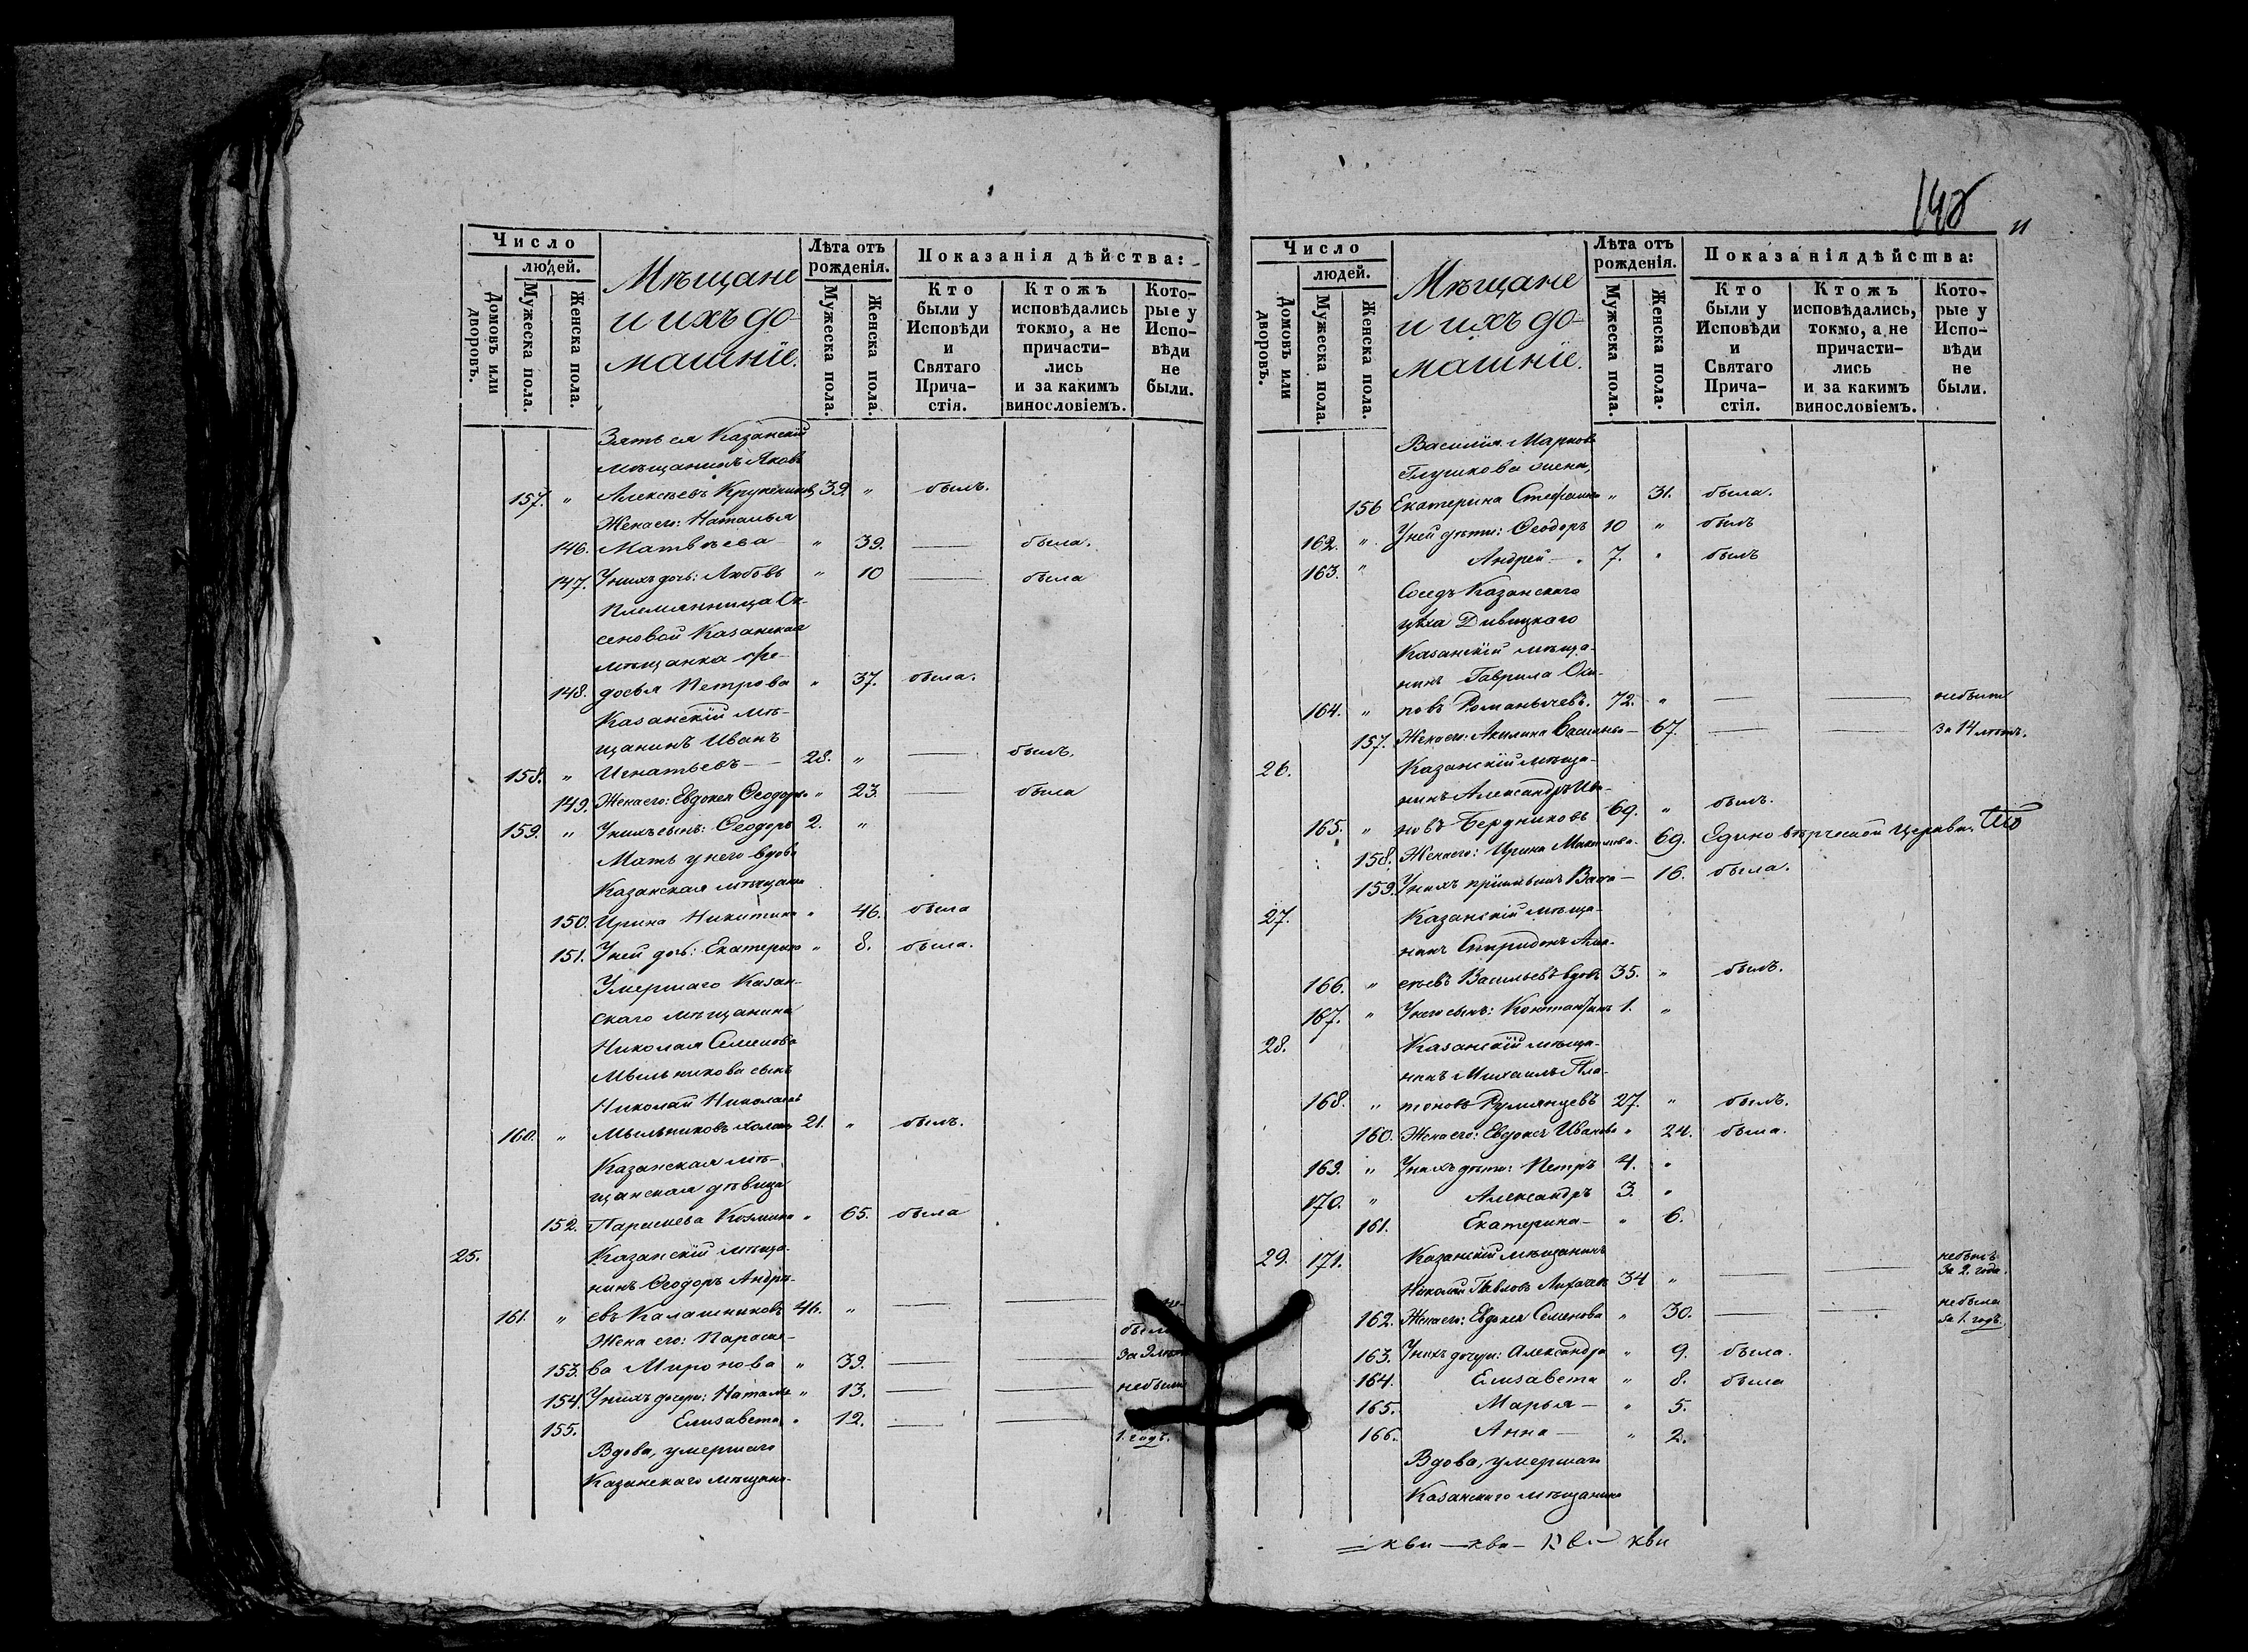 Число
людей.
Домовъ или дворовъ.
Мужеска пола.
Женска пола.
Мѣщане
и ихъ до-
машніе.
Лѣта отъ рожденія.
Мужеска пола.
Женска пола.
Показанія дѣйства:
Кто были у Исповѣди и Святаго Прича-стія.
Ктожъ исповѣдались токмо, а не причасти-лись и за какимъ винословіемъ.
Кото-рые у Испо-вѣди не были.
Зять ея Казанскій
мѣщанинъ Яковъ
157. " Алексѣевъ 39. " былъ.
Жена его: Наталья
146. Матвѣева " 39. — была.
147. У нихъ дочь: Любовь " 10 — была
Племянница
Казанская
мѣщанка Ѳе-
148. досья Петрова " 37. была.
Казанскій мѣ-
щанинъ Иванъ
158. " Игнатьевъ — 28. " — былъ.
149. Жена его: Евдокея Ѳеодоро " 23. — была
159. " У нихъ сынъ: Ѳеодоръ 2. "
Мать у него вдова
Казанская мѣщанка
150. Ирина Никитина " 46. была
151. У ней дочь: Екатерина " 8. была.
Умершаго Казан-
скаго мѣщанина
Николая Семенова
Мыльникова сынъ
Николай Николаевъ
160. " Мыльниковъ холос 21. " былъ.
Казанская мѣ-
щанская дѣвица
152. Параскева Козмина " 65. была
25. Казанскій мѣща-
нинъ Ѳеодоръ Андрѣ-
161. " евъ Калашниковъ 46. " — —
Жена его: Параске-
153. ва Миронова " 39. — —
154. У нихъ дочери: Наталья " 13. — — небыли
155. Елисавета " 12. — — 1. годъ.
Вдова, умершаго
Казанскаго мѣщани-
148
Число
людей.
Домовъ или дворовъ.
Мужеска пола.
Женска пола.
Мѣщане
и ихъ до-
машніе.
Лѣта отъ рожденія.
Мужеска пола.
Женска пола.
Показанія дѣйства:
Кто были у Исповѣди и Святаго Прича-стія.
Ктожъ исповѣдались, токмо, а не причасти-лись и за какимъ винословіемъ.
Кото-рые у Испо-вѣди не были.
Василія Марков
Глушкова жена,
156 Екатерина Стефанов " 31. была.
162. " У ней дѣти: Ѳеодоръ 10 " былъ
163. " Андрей — 7. " былъ
Казанскаго
цѣха
Казанскій мѣща-
нинъ Гаврила Оси-
164. " повъ Романычевъ. 72. " — — небыли
157. Жена его: Акилина Васильева — 67. — — за 14 лѣтъ.
26. Казанскій мѣща-
нинъ Александръ Ива-
165. " новъ Бердниковъ 69. " былъ.
158. Жена его: Ирина Максимова 69. Единовѣрческой церкви.
159. У нихъ — 16. была.
27. Казанскій мѣща-
нинъ Спиридонъ Алек-
166. " сѣевъ Васильевъ вдовъ 35. " былъ.
167. " У него сынъ: Константинъ 1. "
28. Казанскій мѣща-
нинъ Михаилъ Пла-
168. " тоновъ Румянцевъ 27. " былъ.
160. Жена его: Евдокея Иванова " 24. была.
169. " У нихъ дѣти: Петръ 4. "
170. " Александръ 3. "
161. Екатерина — " 6.
29. 171. Казанскій мѣщанинъ
Николай Павловъ Лихачевъ 34 " — — небылъ за 2. года.
162. Жена его: Евдокея Семенова " 30. — — небыла за 1. годъ.
163. У нихъ дочери: Александра " 9. была.
164. Елисавета " 8. была
165. Марья — " 5.
166. Анна — " 2.
Вдова, умершаго
Казанскаго мѣщанина